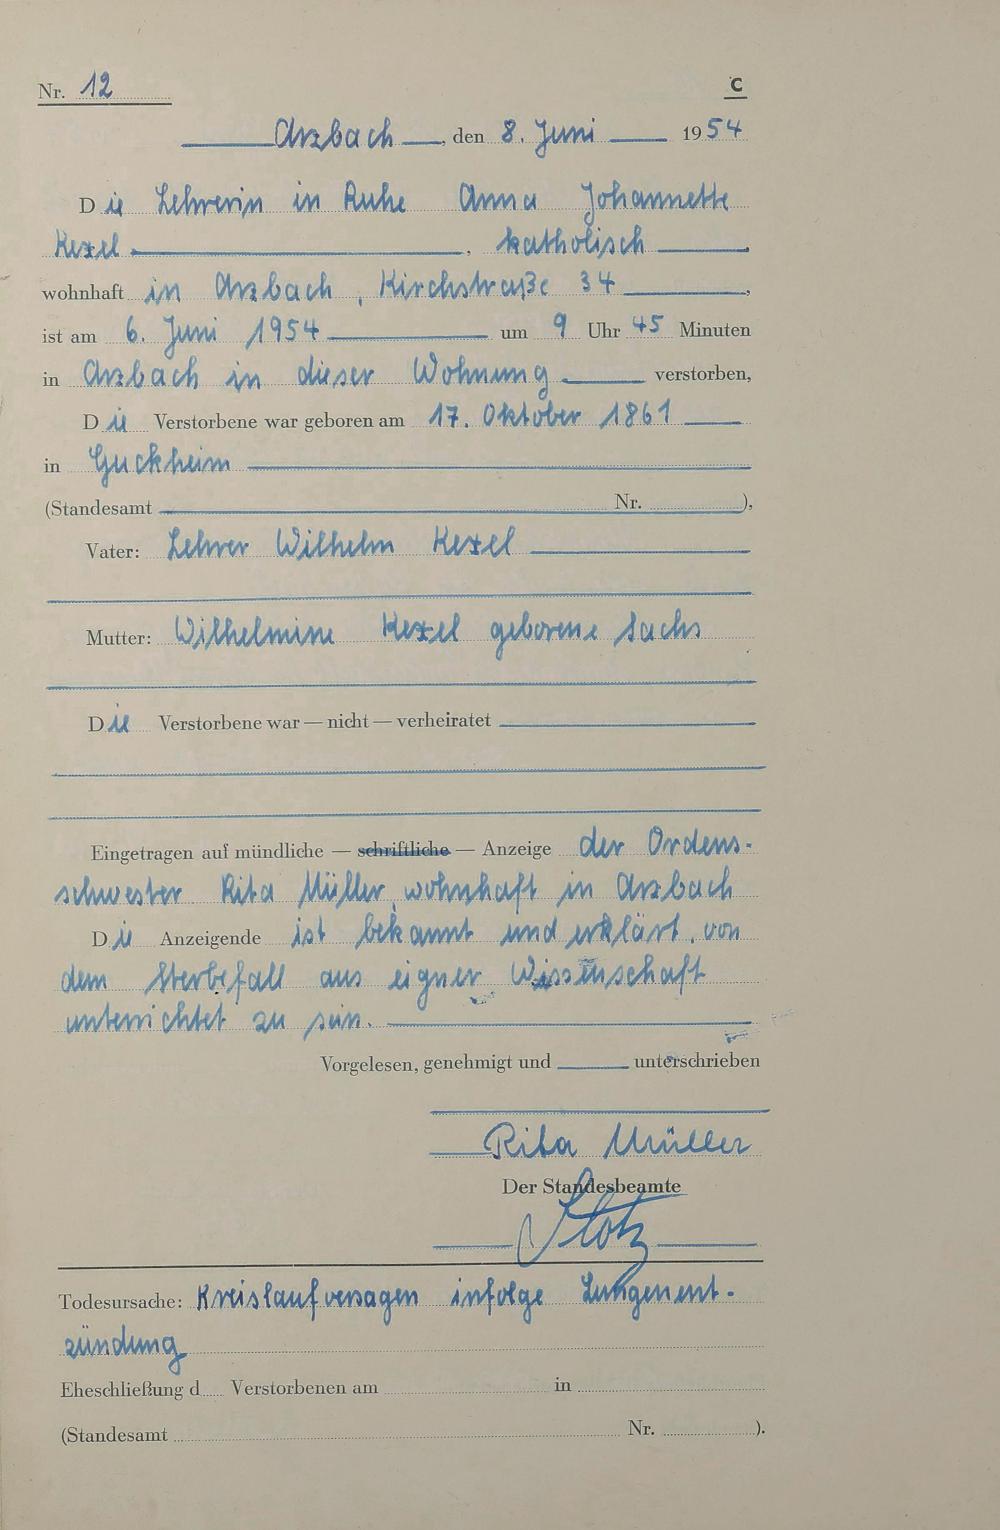 Nr. 12
C
Arzbach, den 8. Juni 1954
Die Lehrerin in Ruhe Anna Johannette
Kexel, katholisch
wohnhaft in Arzbach, Kirchstraße 34,
ist am 6. Juni 1954 um 9 Uhr 45 Minuten
in Arzbach in dieser Wohnung verstorben,
Die Verstorbene war geboren am 17. Oktober 1861
in Guckheim
(Standesamt Nr. ),
Vater: Lehrer Wilhelm Kexel
Mutter: Wilhelmine Kexel geborene Sachs
Die Verstorbene war — nicht — verheiratet
Eingetragen auf mündliche — schriftliche — Anzeige der Ordens-
schwester Rita Müller, wohnhaft in Arzbach
Die Anzeigende ist bekannt und erklärt, von
dem Sterbefall aus eigner Wissenschaft
unterrichtet zu sein.
Vorgelesen, genehmigt und unterschrieben
Rita Müller
Der Standesbeamte
Stotz
Todesursache: Kreislaufversagen infolge Lungenent-
zündung
Eheschließung d Verstorbenen am in
(Standesamt Nr. ).